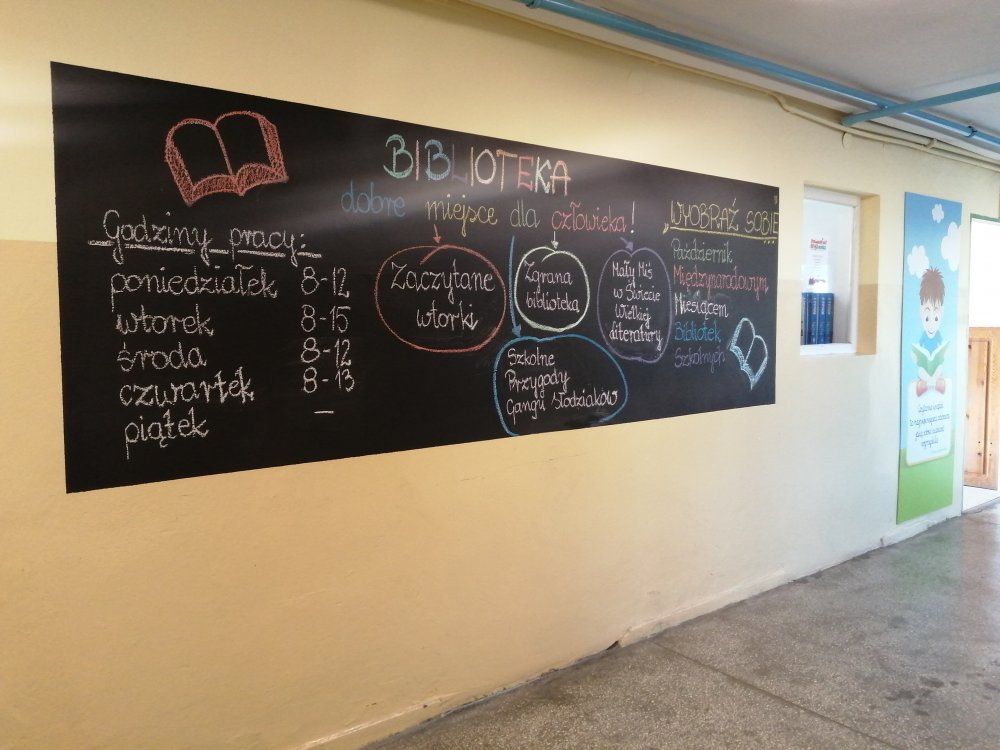 BIBLIOTEKA
dobre miejsce dla człowieka!
Godziny pracy:
poniedziałek 8-12
wtorek 8-15
środa 8-12
czwartek 8-13
piątek –
Zaczytane
wtorki
Zgrana
biblioteka
Mały Miś
w Świecie
Wielkiej
Literatury
Szkolne
Przygody
Gangu Słodziaków
„WYOBRAŹ SOBIE"
Październik
Międzynarodowym
Miesiącem
Bibliotek
Szkolnych
Czytanie książek
to najpiękniejsza zabawa,
jaką sobie ludzkość
wymyśliła